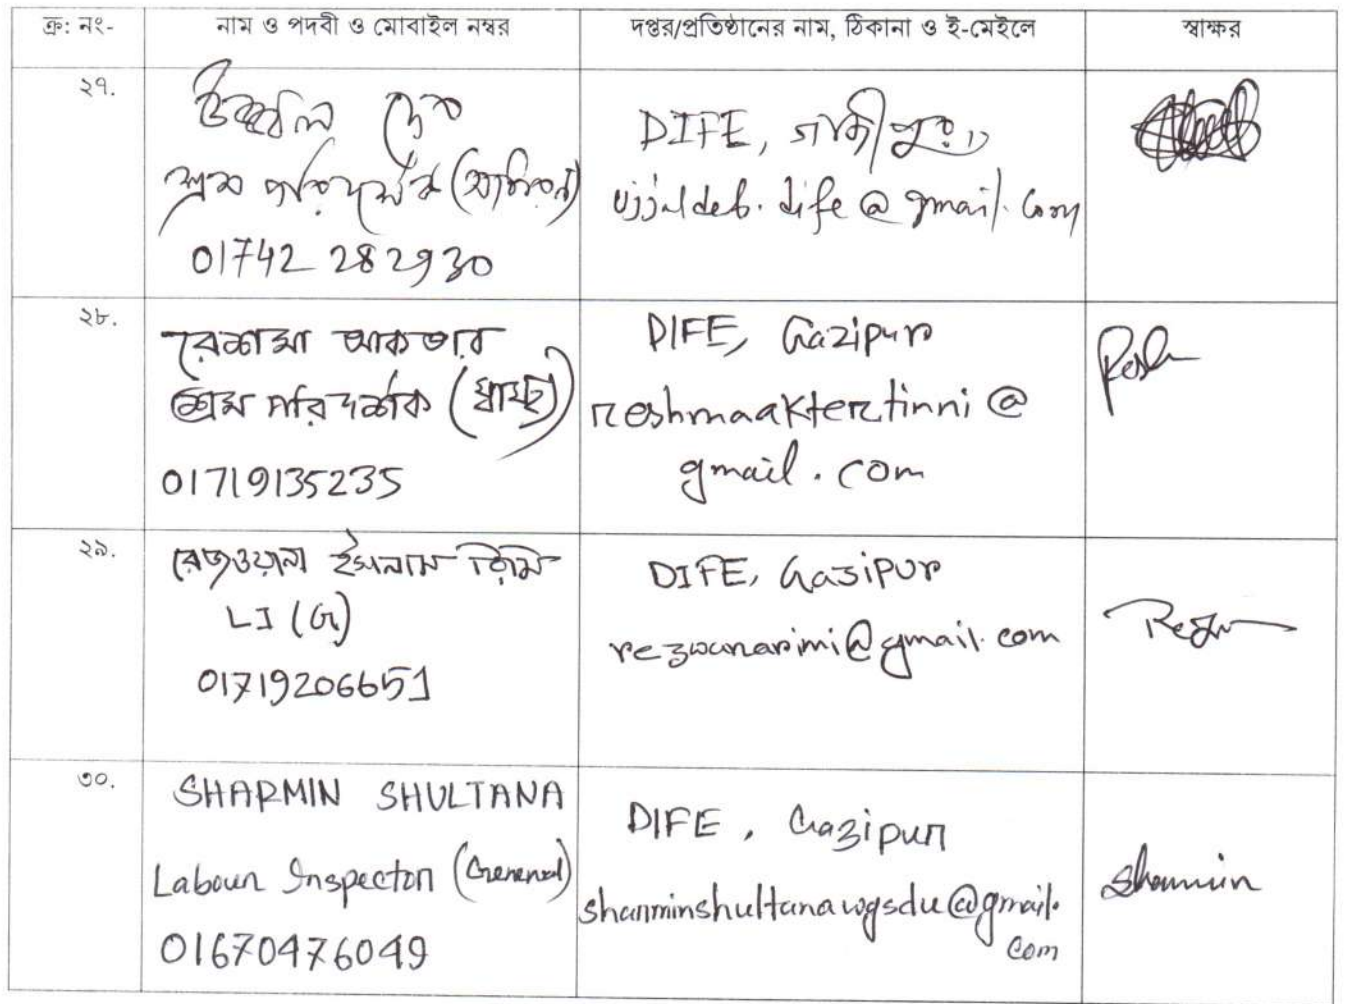 ক্র: নং- নাম ও পদবী ও মোবাইল নম্বর দপ্তর/প্রতিষ্ঠানের নাম, ঠিকানা ও ই-মেইলে স্বাক্ষর
২৭.
উজ্জ্বল দেব
শ্রম পরিদর্শক
01742 282930
DIFE, গাজীপুর।
ujjaldeb.dife@gmail.com
২৮.
রেশমা আকতার
শ্রম পরিদর্শক (স্বাস্থ্য)
01719135235
DIFE, Gazipur
reshmaaktertinni@
gmail.com
Resh
২৯.
রেজওয়ানা ইসলাম রিমি
LI (G)
01719206651
DIFE, Gazipur
rezwanarimi@gmail.com
৩০.
SHARMIN SHULTANA
Labour Inspector (General)
01670476049
DIFE, Gazipur
sharminshultana@gmail.
com
Sharmin